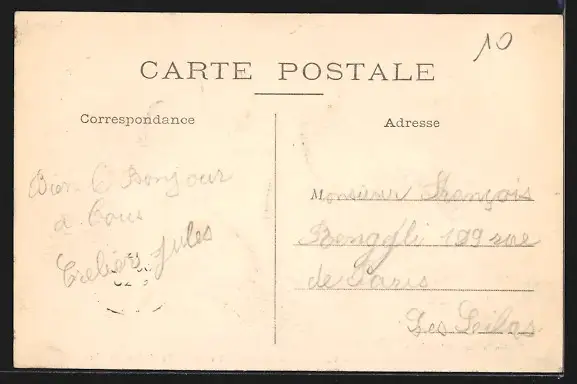 10
CARTE POSTALE
Correspondance
Adresse
Bien le Bonjour
à tous
Jules
Monsieur François
199 rue
de Paris
Les Lilas